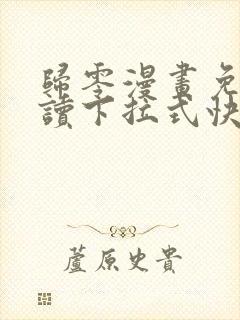 歸零漫畫免
讀下拉式快
蘆原史貴